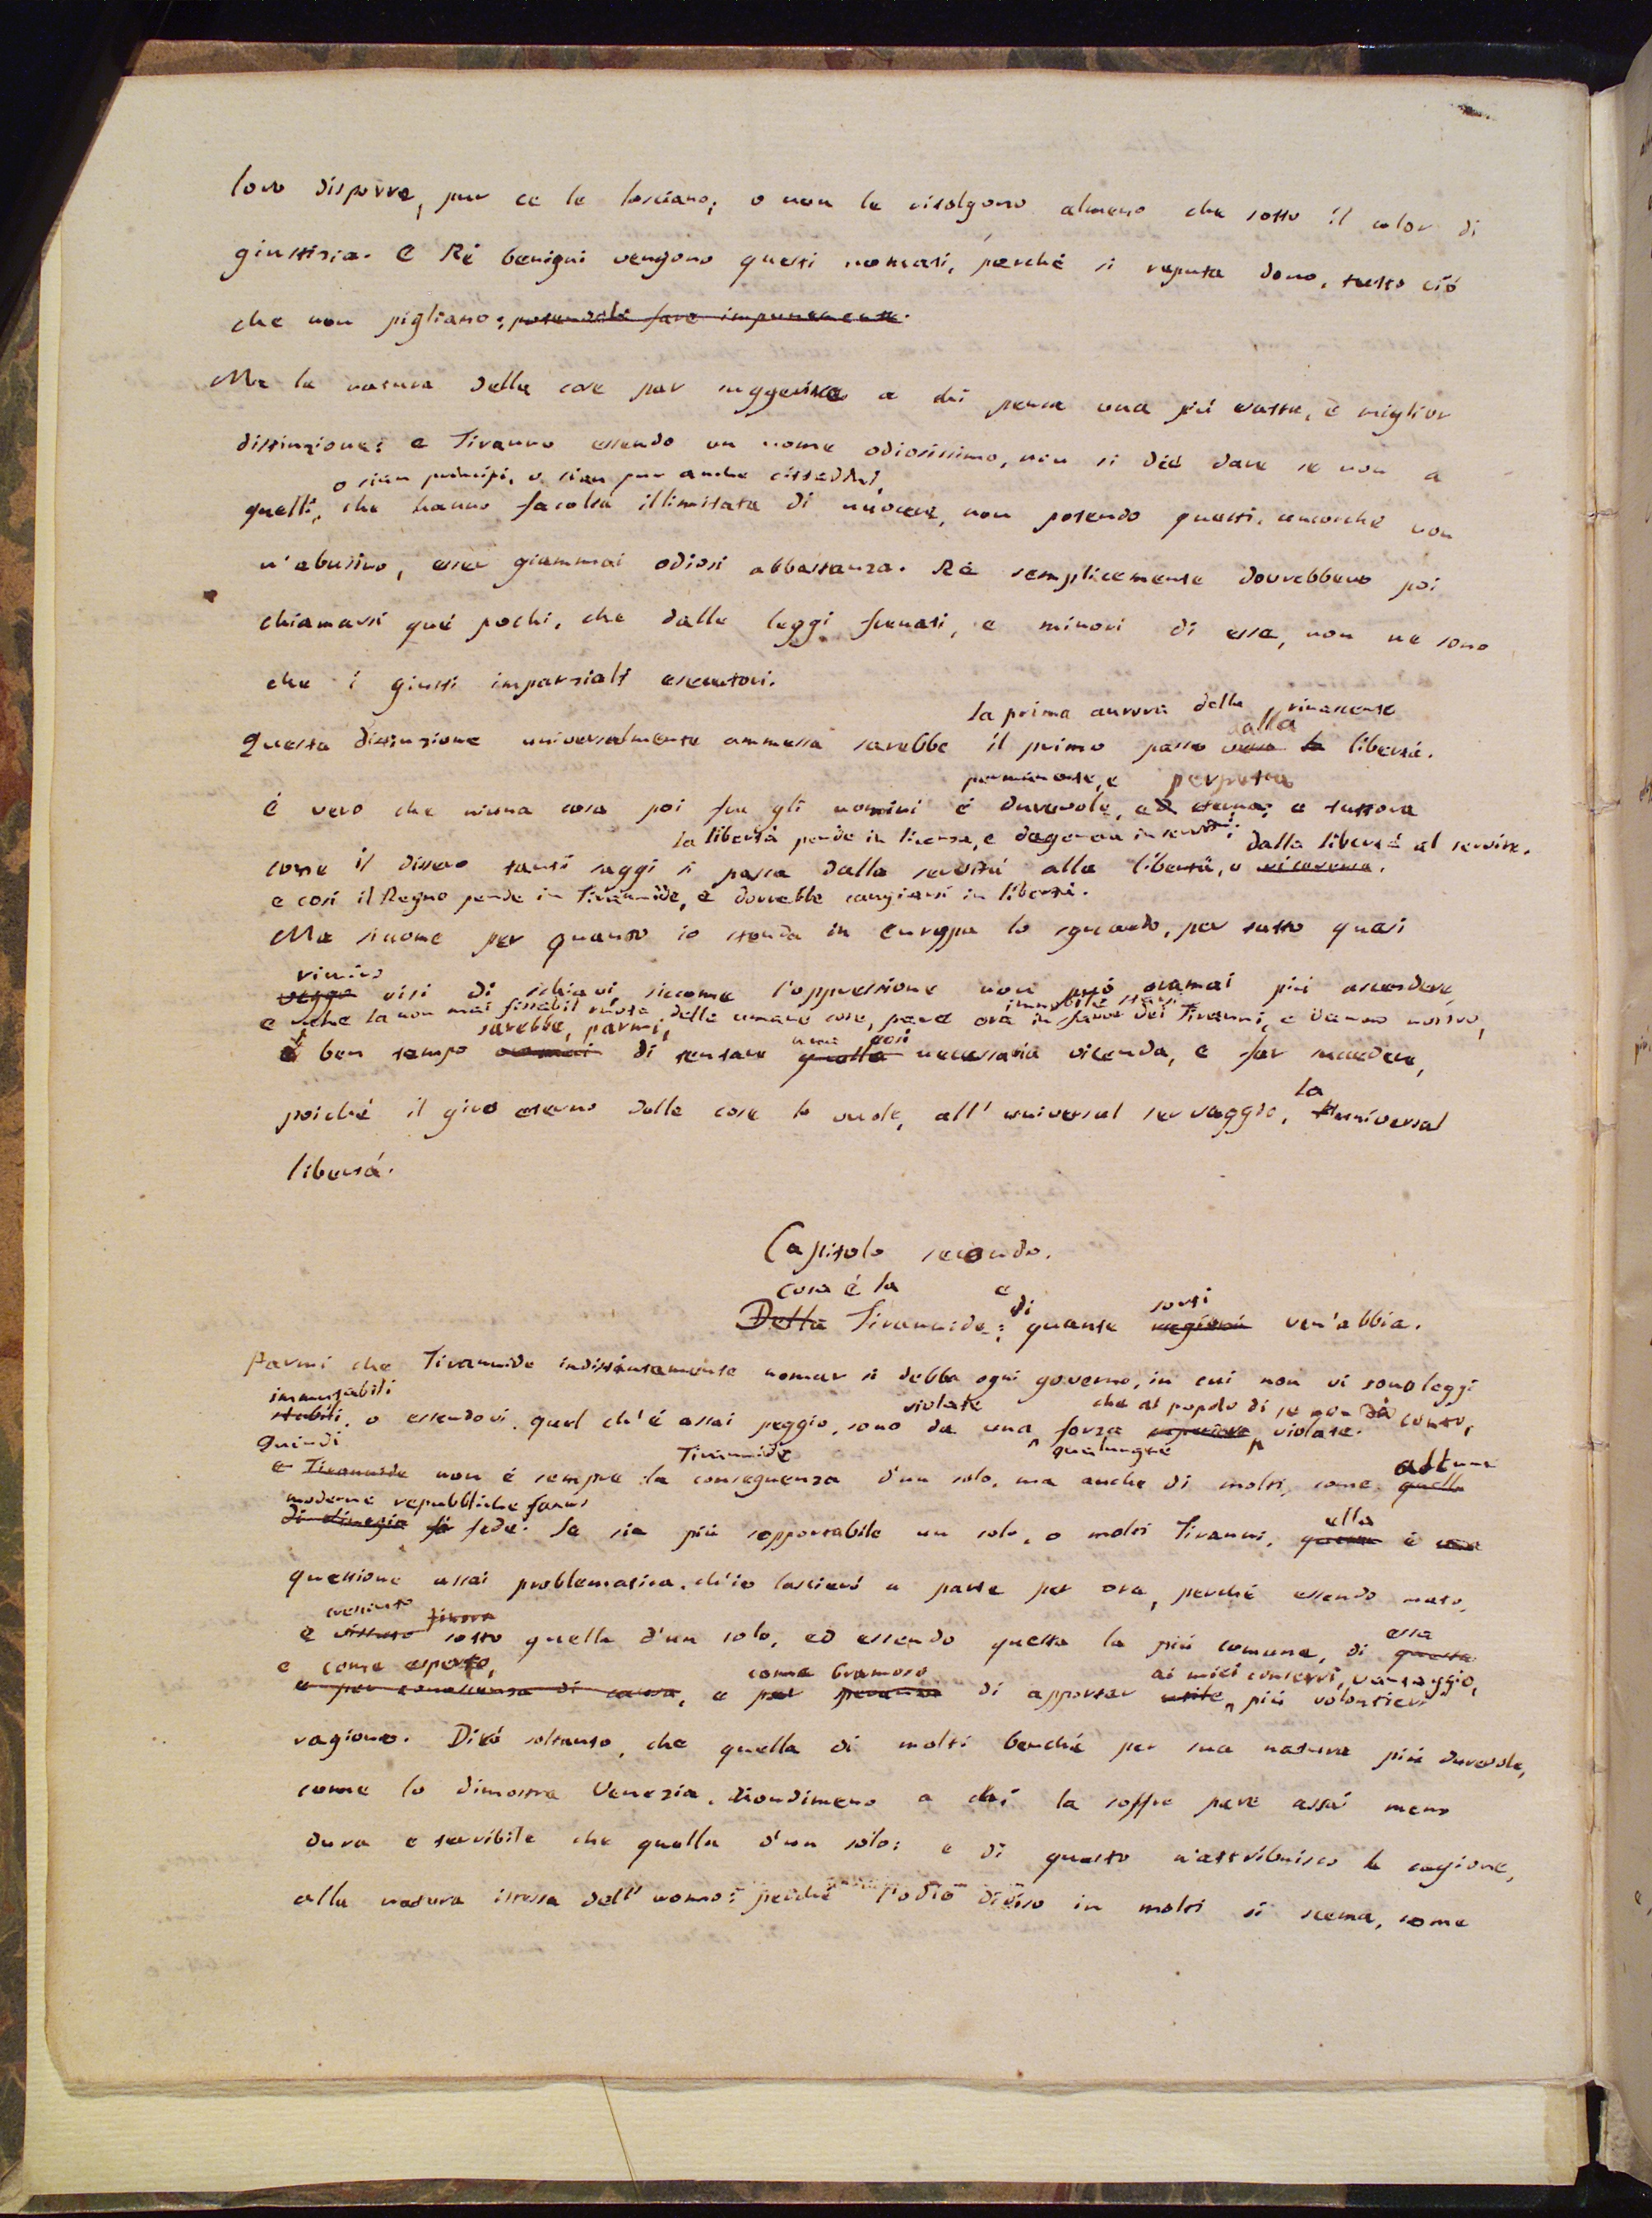 loro disporre, pur ce le lasciano; o non le ritolgono almeno che sotto il color di
giustizia. E Ré benigni vengono questi nomati, perché si reputa dono, tutto ció
che non pigliano: potendolo fare impunemente.
Ma la natura delle cose par suggerisce a chi pensa una piú vasta, e miglior
distinzione: e Tiranno essendo un nome odiosissimo, non si dée dare se non a
o sian principi, o sian pur anche cittadini,
quelli, che hanno facoltá illimitata di nuocere, non potendo questi, ancorché non
n'abusino, esser giammai odiosi abbastanza. Ré semplicemente dovrebbero poi
chiamarsi qué pochi, che dalle leggi frenati, e minori di esse, non ne sono
che i giusti imparziali esecutori.
la prima aurora della rinascente
alla
Questa distinzione universalmente ammessa sarebbe il primo passo verso la libertá.
permanente, e perpetua
é vero che niuna cosa poi fra gli uomini é durevole, ed eterna; e tuttora
la libertá pende in licenza, e degenera in servitú; dalla libertá al servire.
come il dissero tanti saggi si passa dalla servitú alla libertá, o viceversa.
e cosí il Regno pende in Tirannide, e dovrebbe cangiarsi in libertá.
Ma siccome per quanto io stenda in Europa lo sguardo, per tutto quasi
rimiro
veggo visi di schiavi, siccome l'oppressione non puó oramai piú ascendere,
immobile starsi
e che la non mai fissabil ruota delle umane cose, pare ora in favor dei Tiranni, e danno nostro,
sarebbe, parmi, una cosí
é ben tempo oramai di tentare quella necessaria vicenda, e far succedere,
la
poiché il giro eterno delle cose lo vuole, all'universal servaggio, l'universal
libertá.
Capitolo secondo.
cosa é la e di sorti
Della Tirannide: quante ragioni ven'abbia.
Parmi che Tirannide indistintamente nomar si debba ogni governo, in cui non vi sono leggi
immutabili violate che al popolo di se non dá conto,
stabili, o essendovi quel ch'é assai peggio, sono da una forza violate.
qualunque
Quindi Tirannide alcune
e Tirannide non é sempre la conseguenza d'un solo, ma anche di molti, come quella
moderne repubbliche fanno ella
di Venezia fa fede. Se sia piú sopportabile un solo, o molti Tiranni, questa é una
questione assai problematica, ch'io lascieró a parte per ora, perché essendo nato,
cresciuto finora essa
e vissuto sotto quella d'un solo, ed essendo questa la piú comune, di questa
e come esperto, come bramoso ai miei conservi, vantaggio,
e per conoscenza di causa, e per di apportar utile, piú volontieri
ragiono. Diró soltanto, che quella di molti benché per sua natura piú durevole,
come lo dimostra Venezia, nondimeno a chi la soffre pare assai meno
dura e terribile che quella d'un solo: e di questo n'attribuisco la cagione,
alla natura istessa dell'uomo: perché l'odio diviso in molti si scema, come